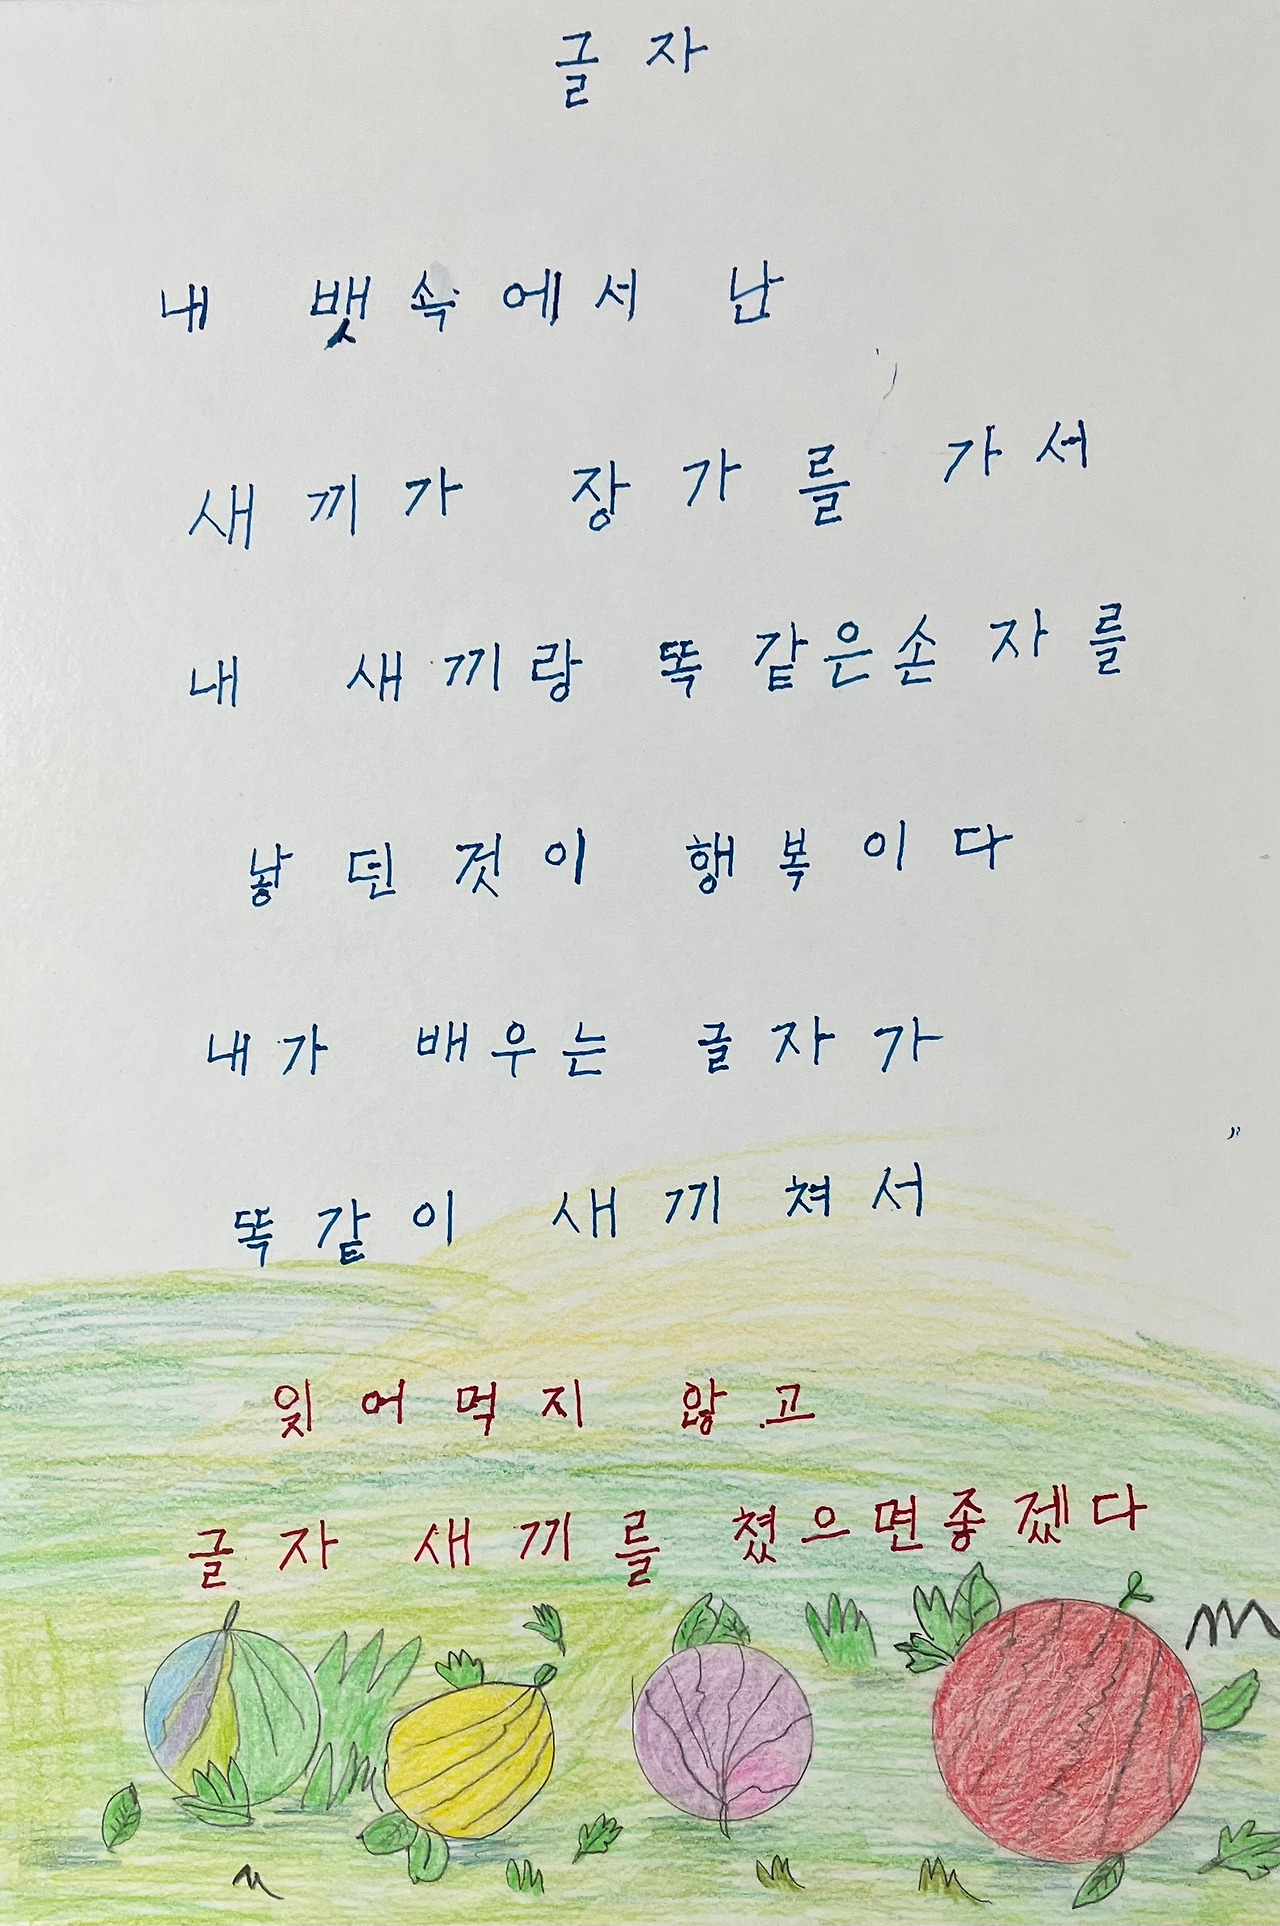 글자
내 뱃속에서 난
새끼가 장가를 가서
내 새끼랑 똑같은손자를
낳던것이 행복이다
내가 배우는 글자가
똑같이 새끼쳐서
잊어먹지 않고
글자 새끼를 쳤으면좋겠다